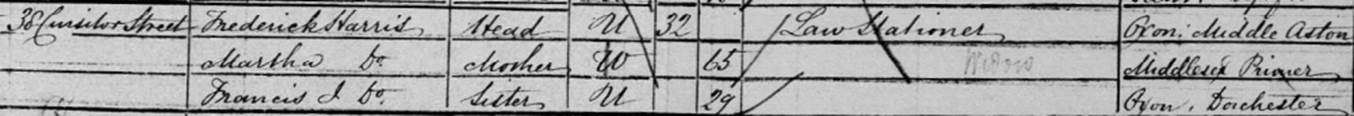 38 Cursitor Street Frederick Harris Head U 32 Law Stationer Oxon: Middle Aston
Martha Do Mother W 65 Widow Middlesex Pinner
Francis J Do. Sister U 29 Oxon. Dorchester